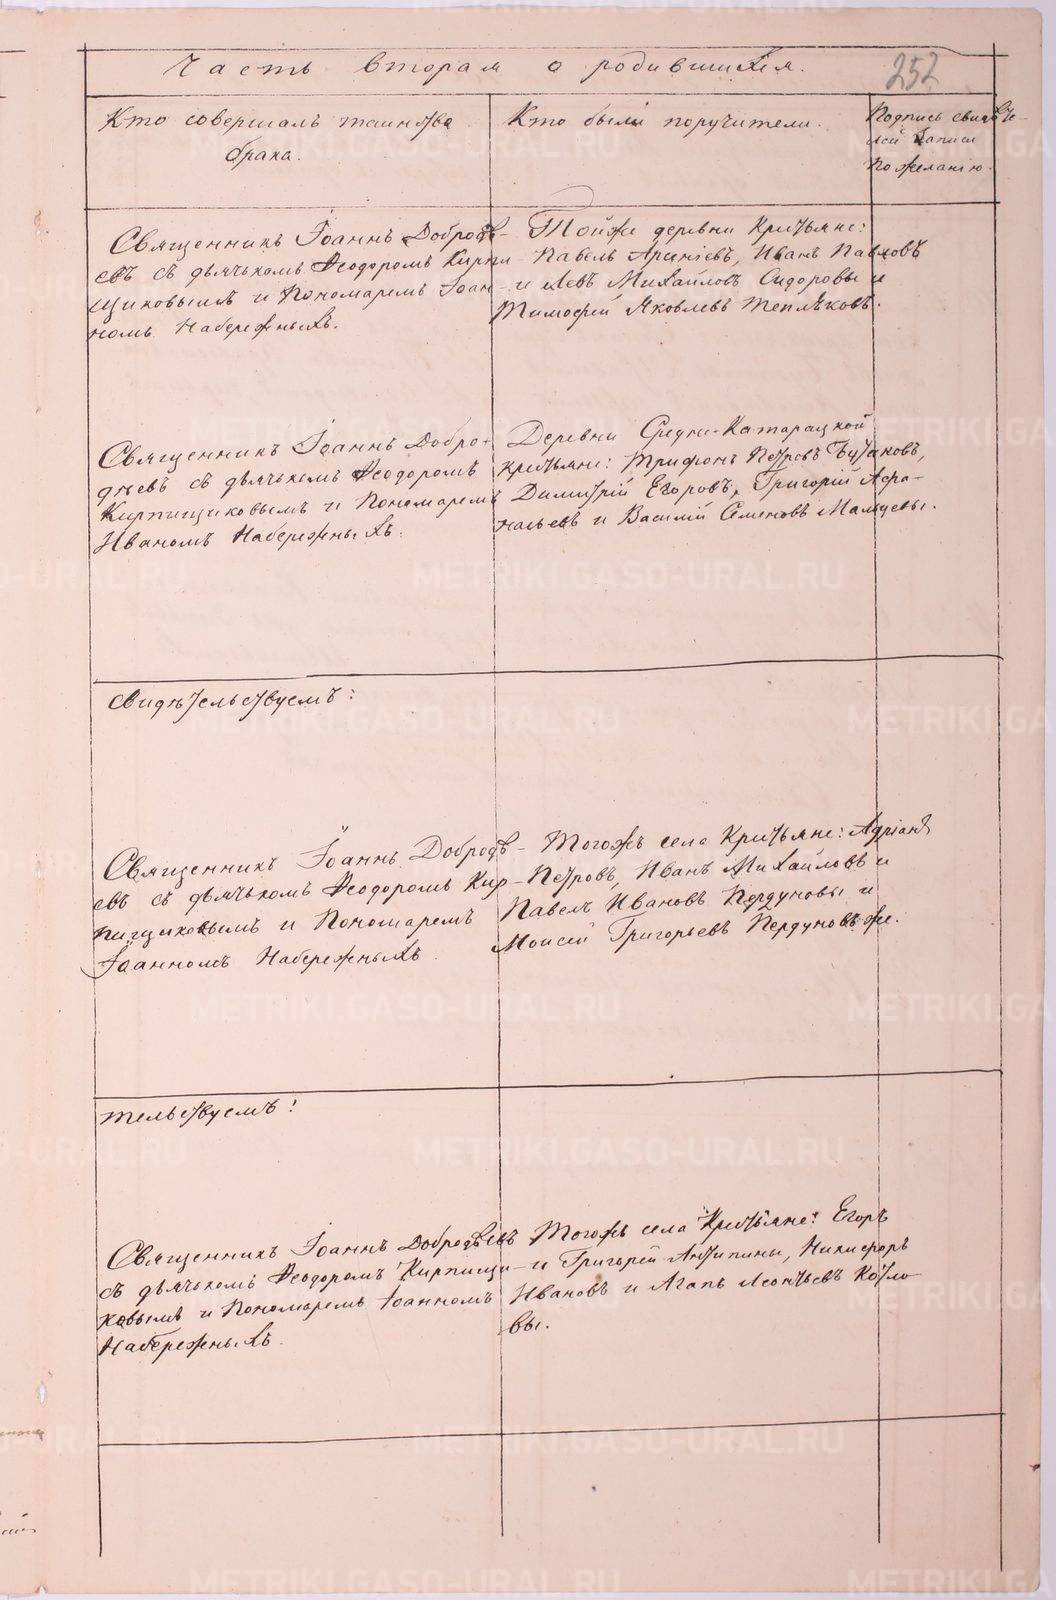 Часть вторая о родившихся.
252
Кто совершалъ таинство
брака.
Кто были поручители.
Подпись свидѣте-
лей записи
по желанію.
Священникъ Іоаннъ Добродѣ-
евъ съ дьячькомъ Ѳеодоромъ Кирпи
щиковымъ и Пономаремъ Іоан-
номъ Набережныхъ.
Тойже деревни Крестьяне:
Павелъ Арсніевъ, Иванъ Павловъ
и Левъ Михайловъ Сидоровы и
Тимофей Яковлевъ Тепляковъ.
Священникъ Іоаннъ Добро-
дѣевъ съ дьячькомъ Ѳеодоромъ
Кирпищиковымъ и Пономаремъ
Иваномъ Набережныхъ.
Деревни Средни-Катарацкой
крестьяне: Трифонъ Петровъ Бутаковъ,
Димитрій Егоровъ, Григорій Афа-
насьевъ и Василій Семеновъ Мальцевы.
свидѣтельствуемъ:
Священникъ Іоаннъ Добродѣ-
евъ съ дьячькомъ Ѳеодоромъ Кир-
пищиковымъ и Пономаремъ
Іоанномъ Набережныхъ.
Тогожъ села Крестьяне: Адріанъ
Петровъ, Иванъ Михайловъ и
Павелъ Ивановъ Пердуновы и
Моисей Григорьевъ Пердуновъ же.
тельствуемъ:
Священникъ Іоаннъ Добродѣевъ
съ дьячькомъ Ѳеодоромъ Кирпищи-
ковымъ и Пономаремъ Іоанномъ
Набережныхъ.
Тогожъ села Крестьяне: Егоръ
и Григорей Антипины, Никифоръ
Ивановъ и Агапъ Леонтьевъ Козло-
вы.
METRIKI.GASO-URAL.RU